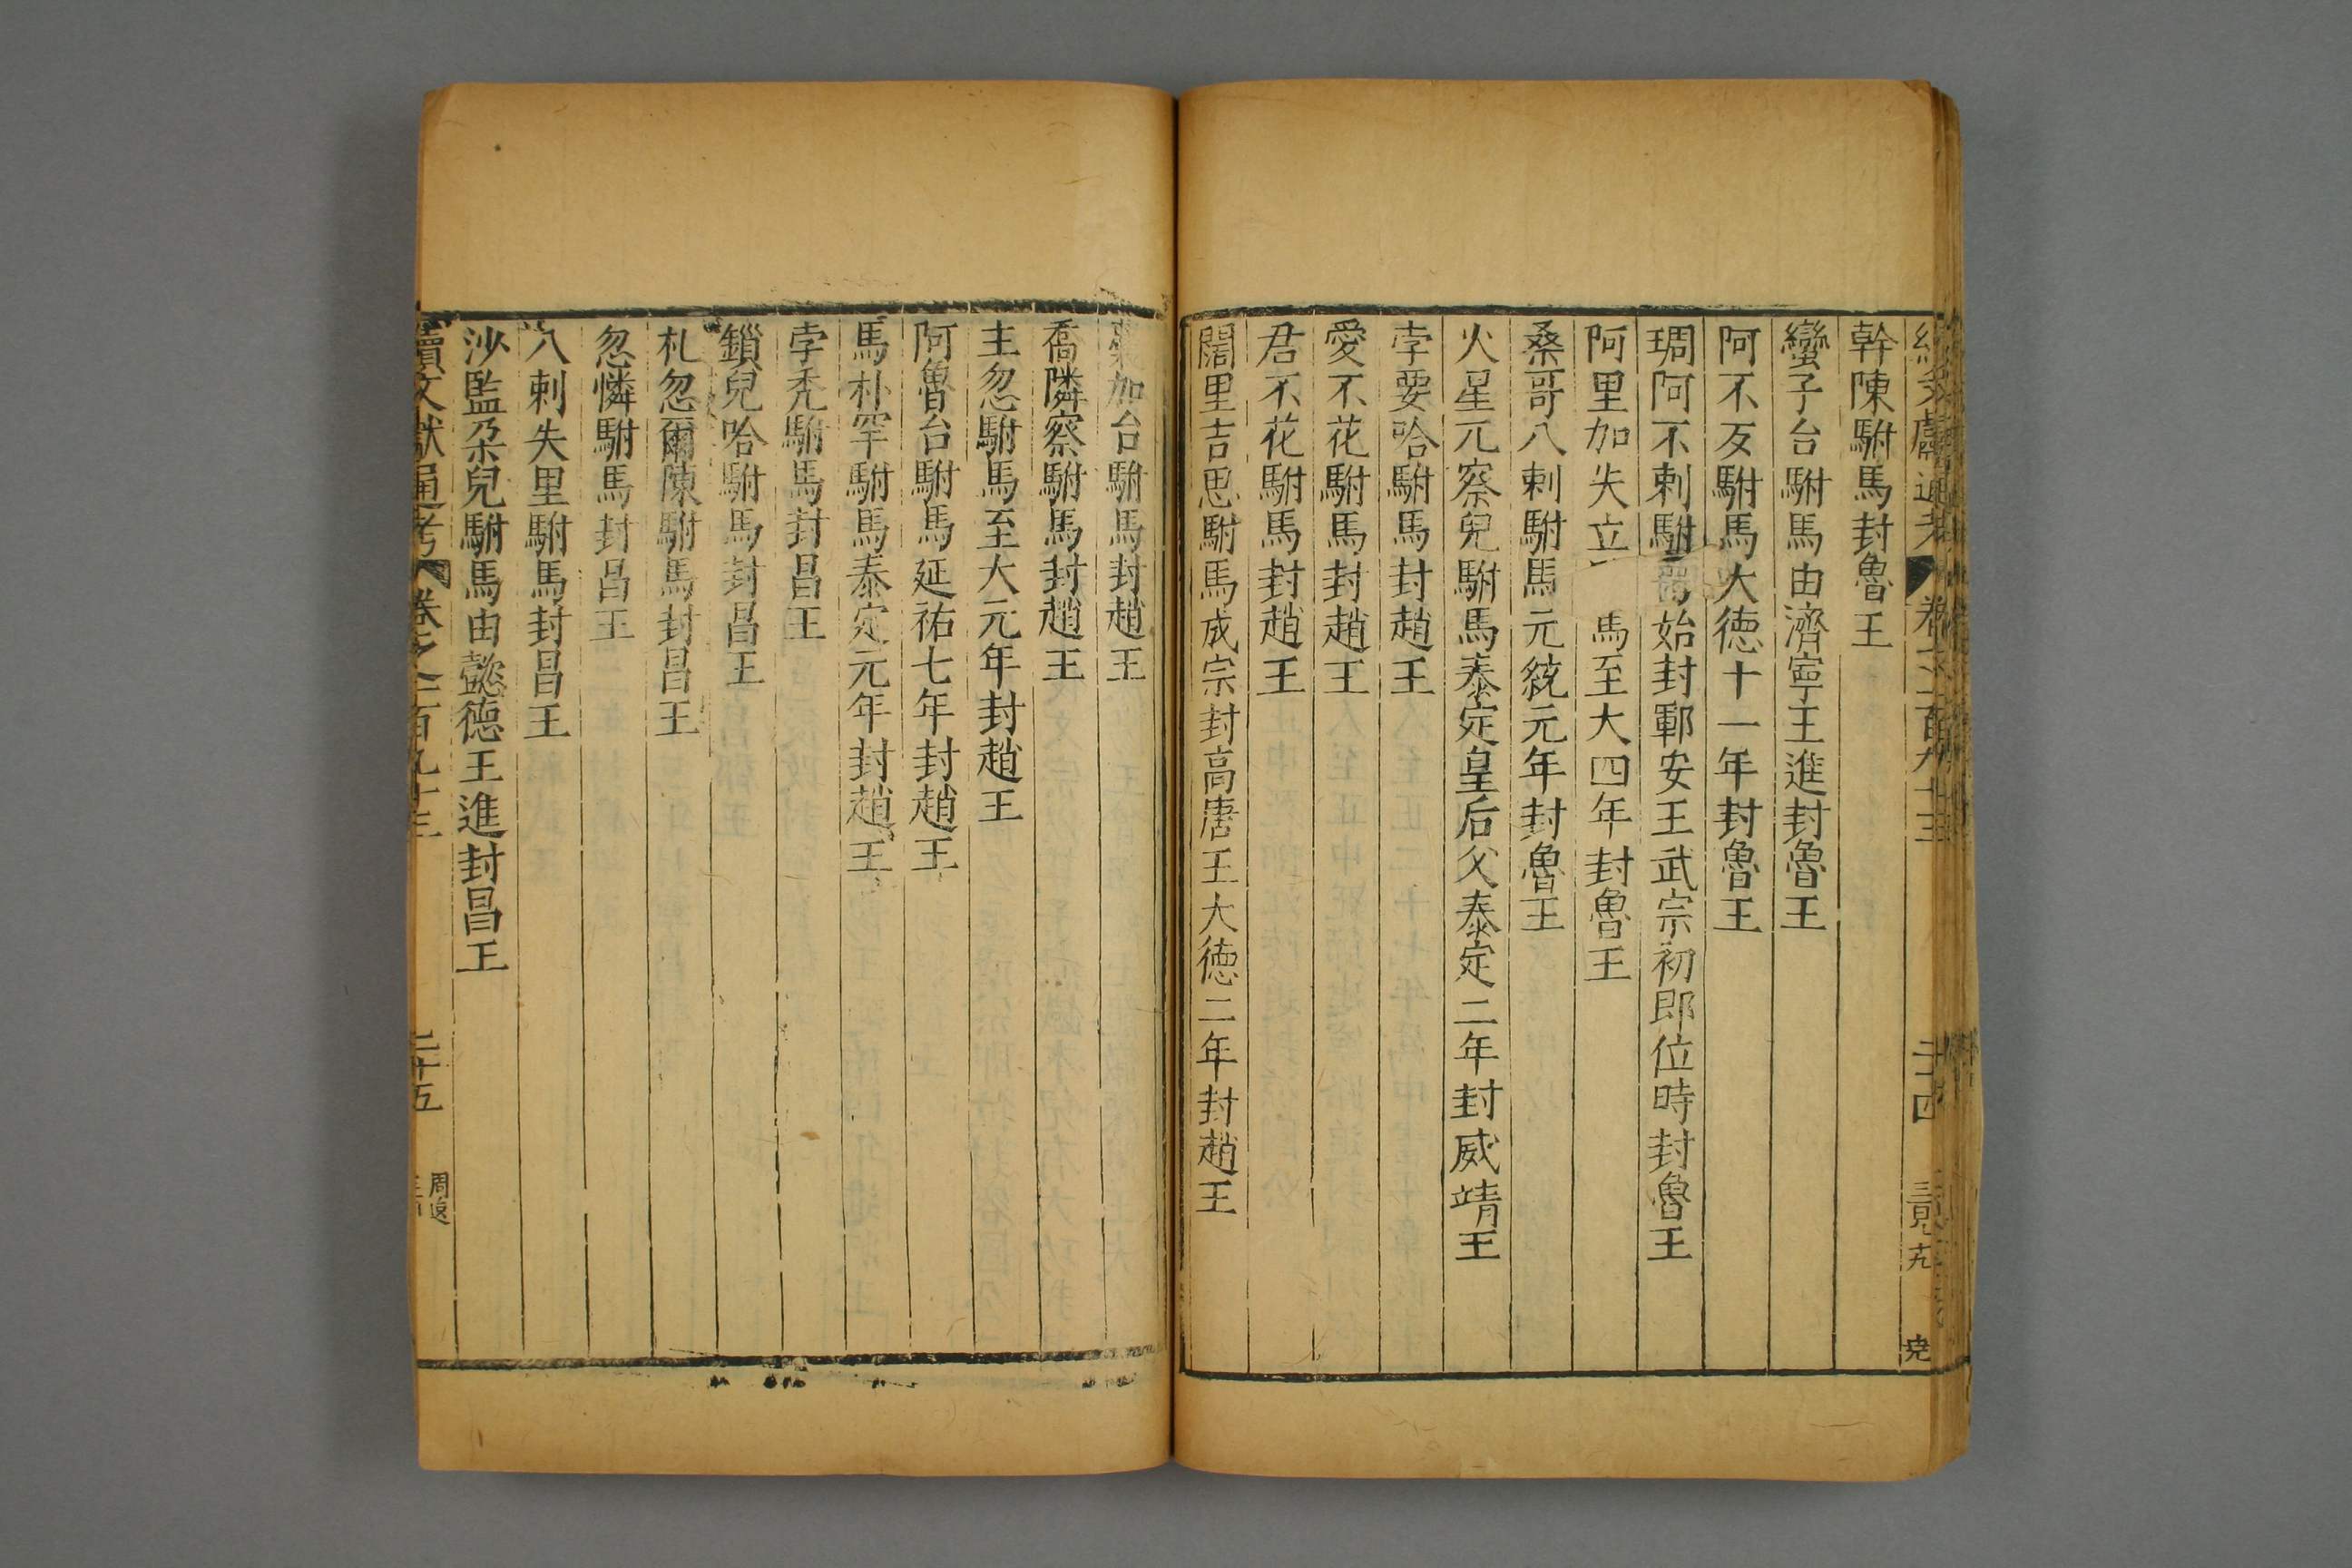 幹陳駙馬封魯王
蠻子台駙馬由濟寧王進封魯王
阿不𠬡駙馬大德十一年封魯王
琱阿不剌駙馬始封鄆安王武宗初即位時封魯王
阿里加失立 馬至大四年封魯王
桑哥八剌駙馬元統元年封魯王
火星兀察兒駙馬泰定皇后父泰定二年封威靖王
孛要哈駙馬封趙王
愛不花駙馬封趙王
君不花駙馬封趙王
闊里吉思駙馬成宗封高唐王大德二年封趙王
加台駙馬封趙王
喬隣察駙馬封趙王
主忽駙馬至大元年封趙王
阿魯台駙馬延祐七年封趙王
馬朴罕駙馬泰定元年封趙王
孛禿駙馬封昌王
鎻兒哈駙馬封昌王
札忽爾陳駙馬封昌王
忽憐駙馬封昌王
八剌失里駙馬封昌王
沙監朶兒駙馬由懿德王進封昌王
續文獻通考 卷之二百九十三 二十五